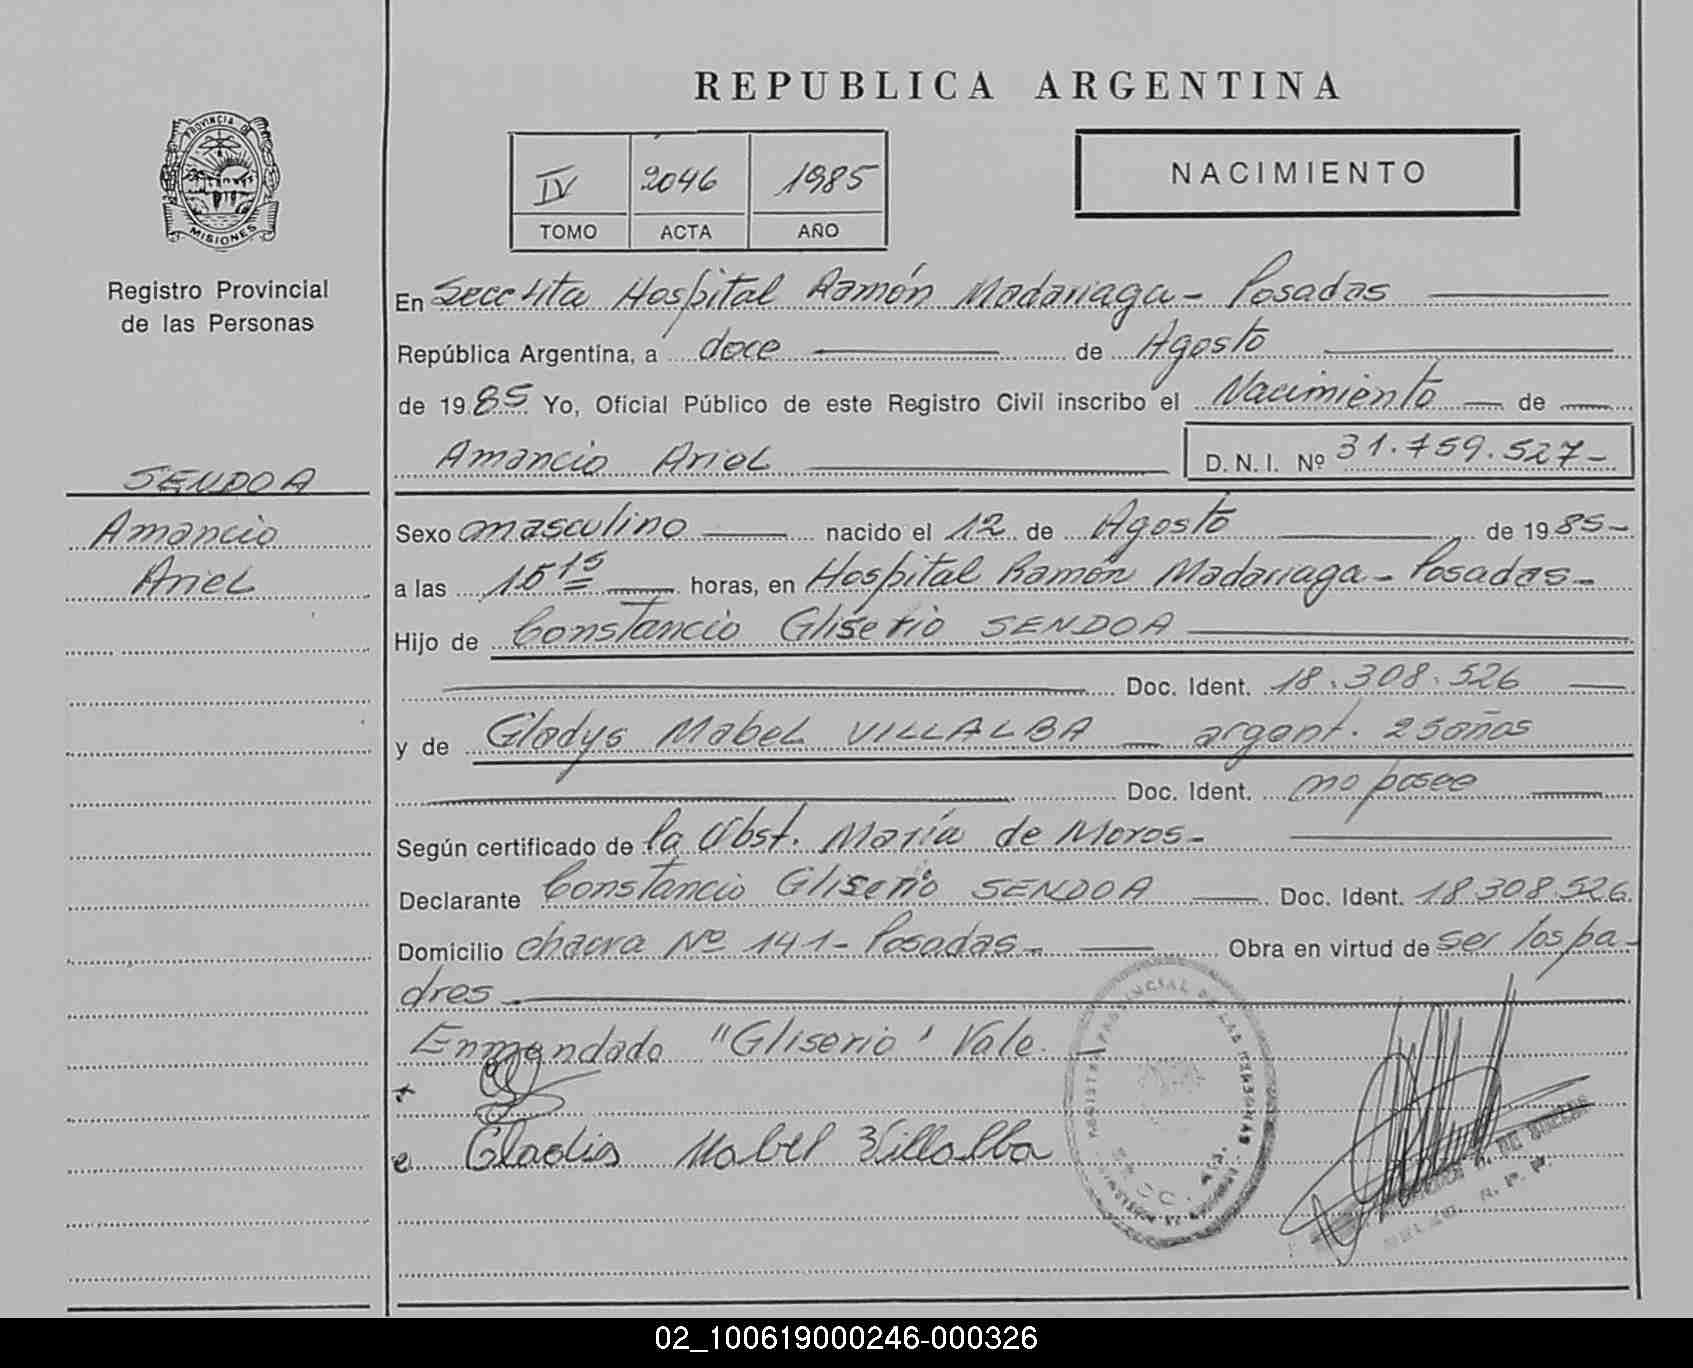 REPUBLICA ARGENTINA
PROVINCIA DE
MISIONES
Registro Provincial
de las Personas
IV 2046 1985
TOMO ACTA AÑO
NACIMIENTO
En Secc 4ta Hospital Ramón Madariaga - Posadas
República Argentina, a doce de Agosto
de 1985 Yo, Oficial Público de este Registro Civil inscribo el Nacimiento de
Amancio Ariel D.N.I. Nº 31.759.527-
SENDOA
Amancio
Ariel
Sexo masculino nacido el 12 de Agosto de 1985-
a las 15 15 horas, en Hospital Ramón Madariaga - Posadas-
Hijo de Constancio Gliserio SENDOA
Doc. Ident. 18.308.526
y de Gladys Mabel VILLALBA argent. 25 años
Doc. Ident. no posee
Según certificado de la Obst. María de Moros-
Declarante Constancio Gliserio SENDOA Doc. Ident. 18308.526
Domicilio chacra Nº 141 - Posadas- Obra en virtud de ser los pa-
dres
Enmendado "Gliserio" Vale.
Gladis Mabel Villalba
02_100619000246-000326